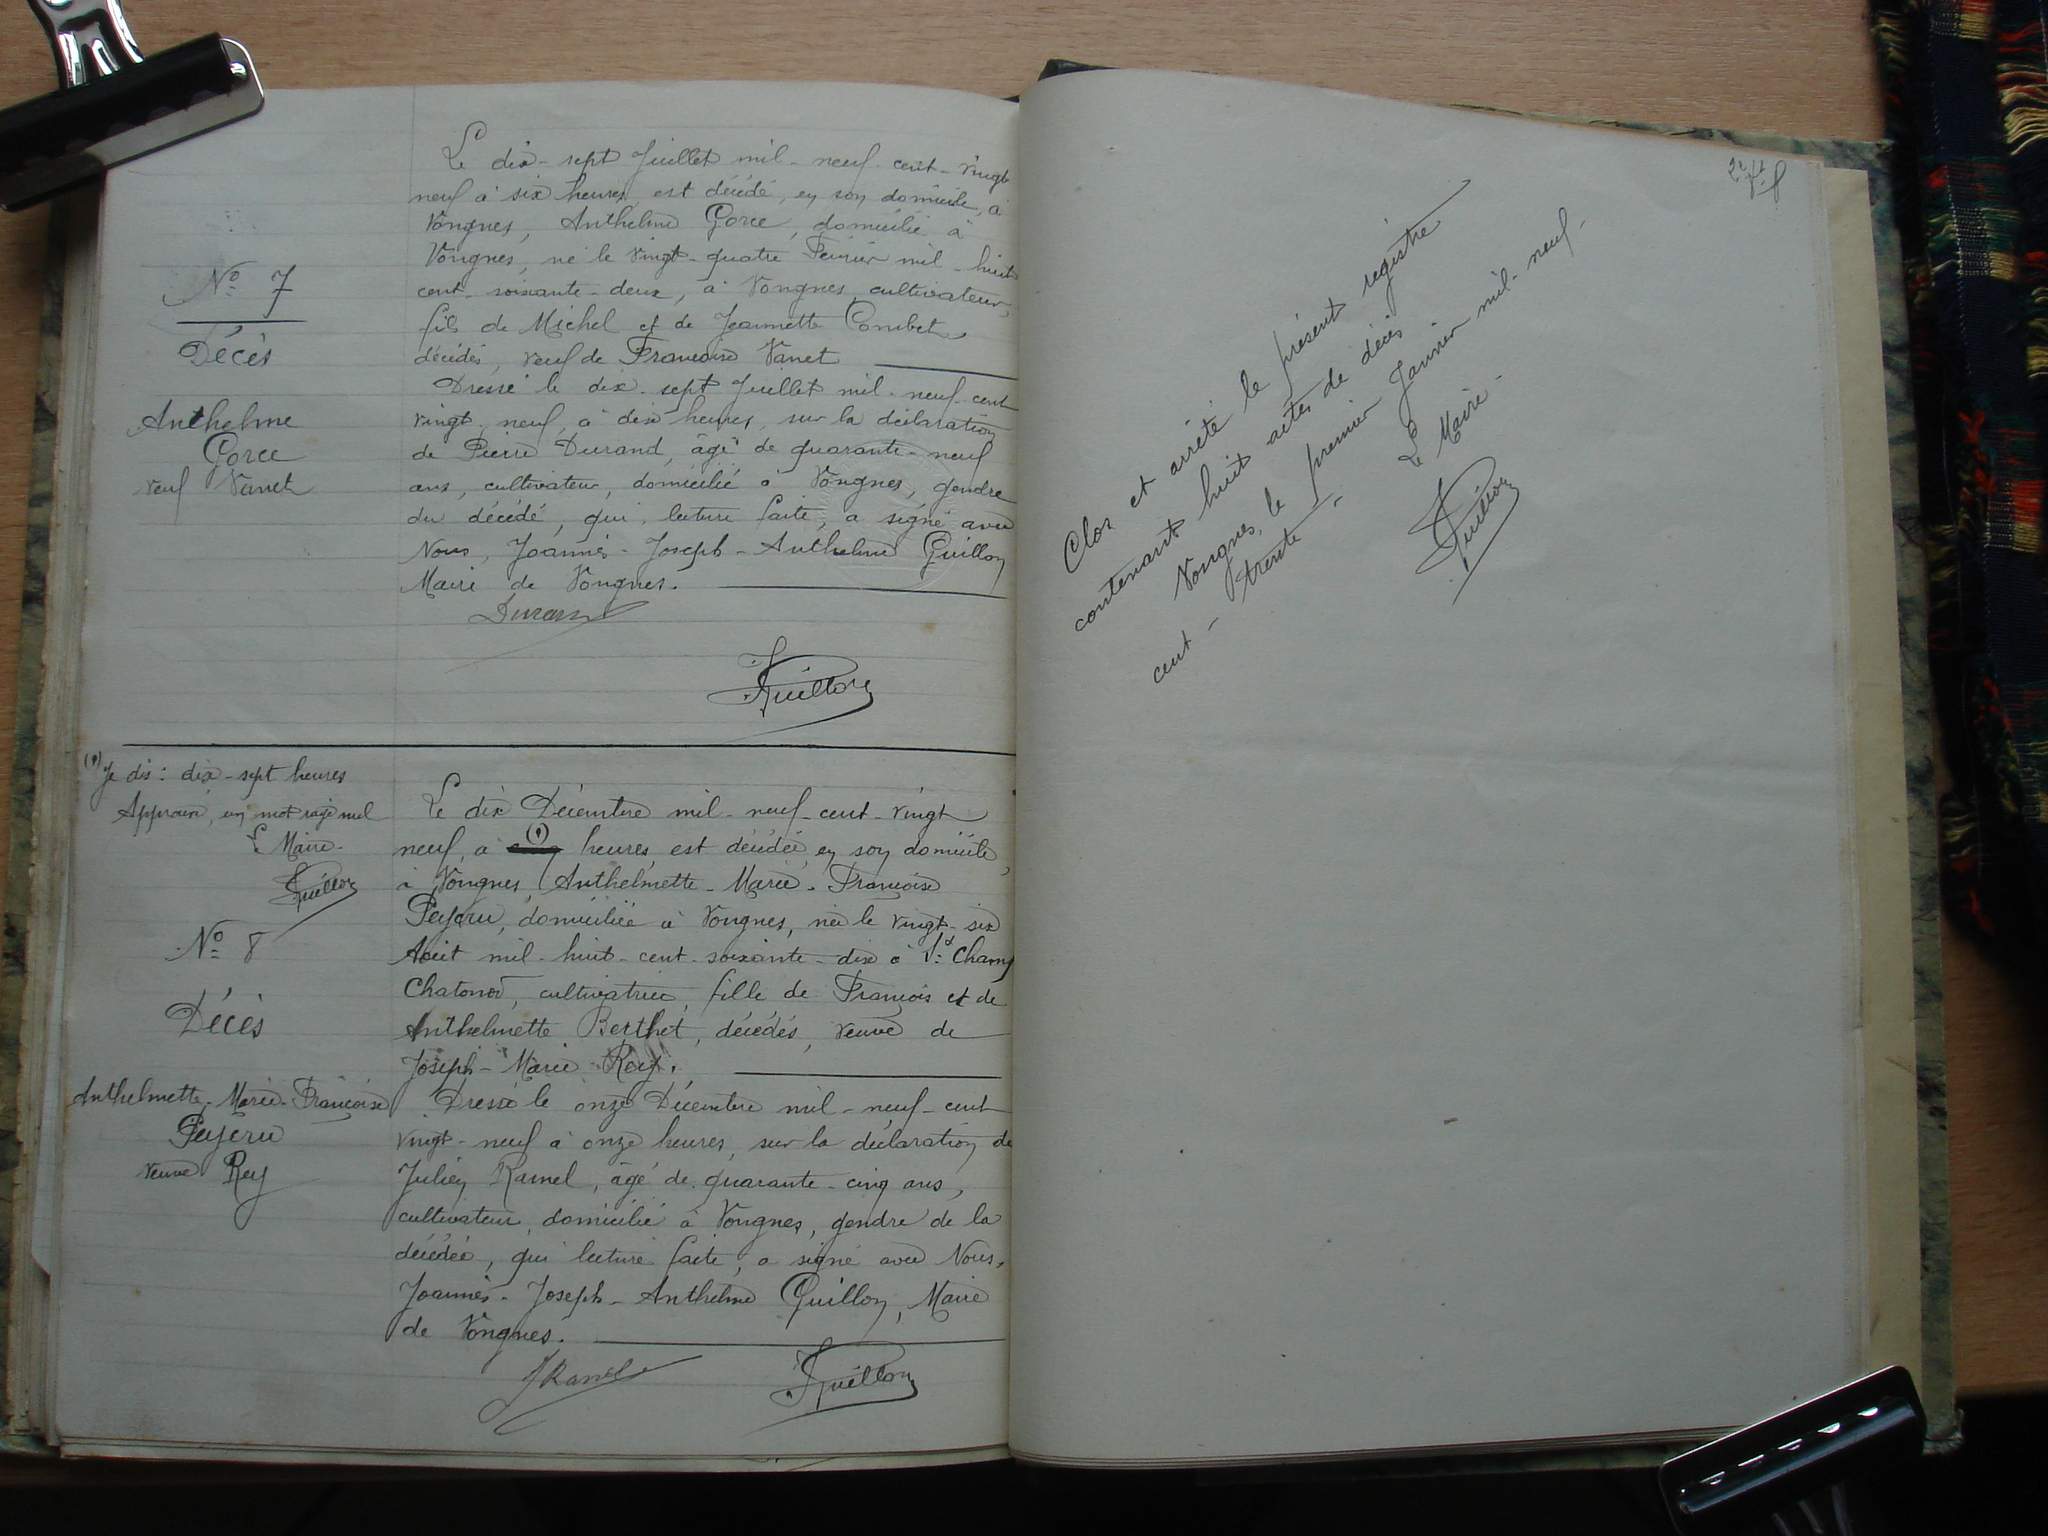 N° 7
Décès
Anthelme
Gorce
veuf Vanet
Le dix-sept Juillet mil-neuf-cent-vingt
neuf à six heures, est décédé, en son domicile, à
Vongnes, Anthelme Gorce, domicilié à
Vongnes, né le vingt-quatre Février mil-huit
cent-soixante-deux, à Vongnes, cultivateur,
fils de Michel et de Jeannette Combet,
décédés, veuf de Françoise Vanet
Dressé le dix-sept Juillet mil-neuf-cent
vingt-neuf, à dix heures, sur la déclaration
de Pierre Durand, âgé de quarante-neuf
ans, cultivateur, domicilié à Vongnes, gendre
du décédé, qui, lecture faite, a signé avec
Nous, Joannès-Joseph-Anthelme Guillon
Maire de Vongnes.
Durand
Guillon
(1) Je dis: dix-sept heures
Approuvé, un mot rayé nul
Le Maire-
Guillon
N° 8
Décès
Anthelmette-Marie-Françoise
Peyeru
veuve Rey
Le dix Décembre mil-neuf-cent-vingt
neuf, à (1) heures, est décédée, en son domicile,
à Vongnes, Anthelmette-Marie-Françoise
Peyeru, domiciliée à Vongnes, née le vingt-six
Août mil-huit-cent-soixante-dix à St Champ
Chatonod, cultivatrice, fille de François et de
Anthelmette Berthet, décédés, veuve de
Joseph-Marie Rey.
Dressé le onze Décembre mil-neuf-cent
vingt-neuf à onze heures, sur la déclaration de
Julien Ramel, âgé de quarante-cinq ans,
cultivateur, domicilié à Vongnes, gendre de la
décédée, qui lecture faite, a signé avec Nous,
Joannès-Joseph-Anthelme Guillon, Maire
de Vongnes.
J Ramel
Guillon
Clos et arrêté le présent registre
contenant huit actes de décès
Vongnes, le premier Janvier mil-neuf-
cent-trente-
Le Maire-
Guillon